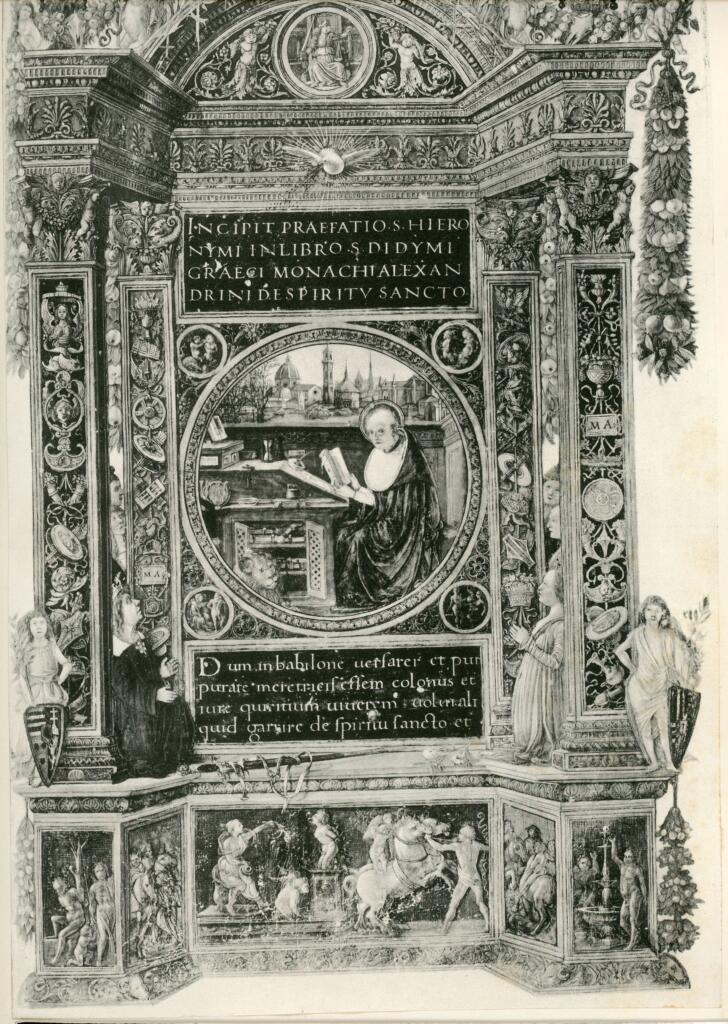 INCIPIT PRAEFATIO·S·HIERO
NYMI IN LIBRO·S·DIDYMI
GRAECI MONACHI ALEXAN
DRINI DE SPIRITV SANCTO
MA
MA
Dum in babilone uersarer et pur
puratę meretricis essem colonus et
iure quiritium uiuerem uolui ali
quid garrire de spiritu sancto et